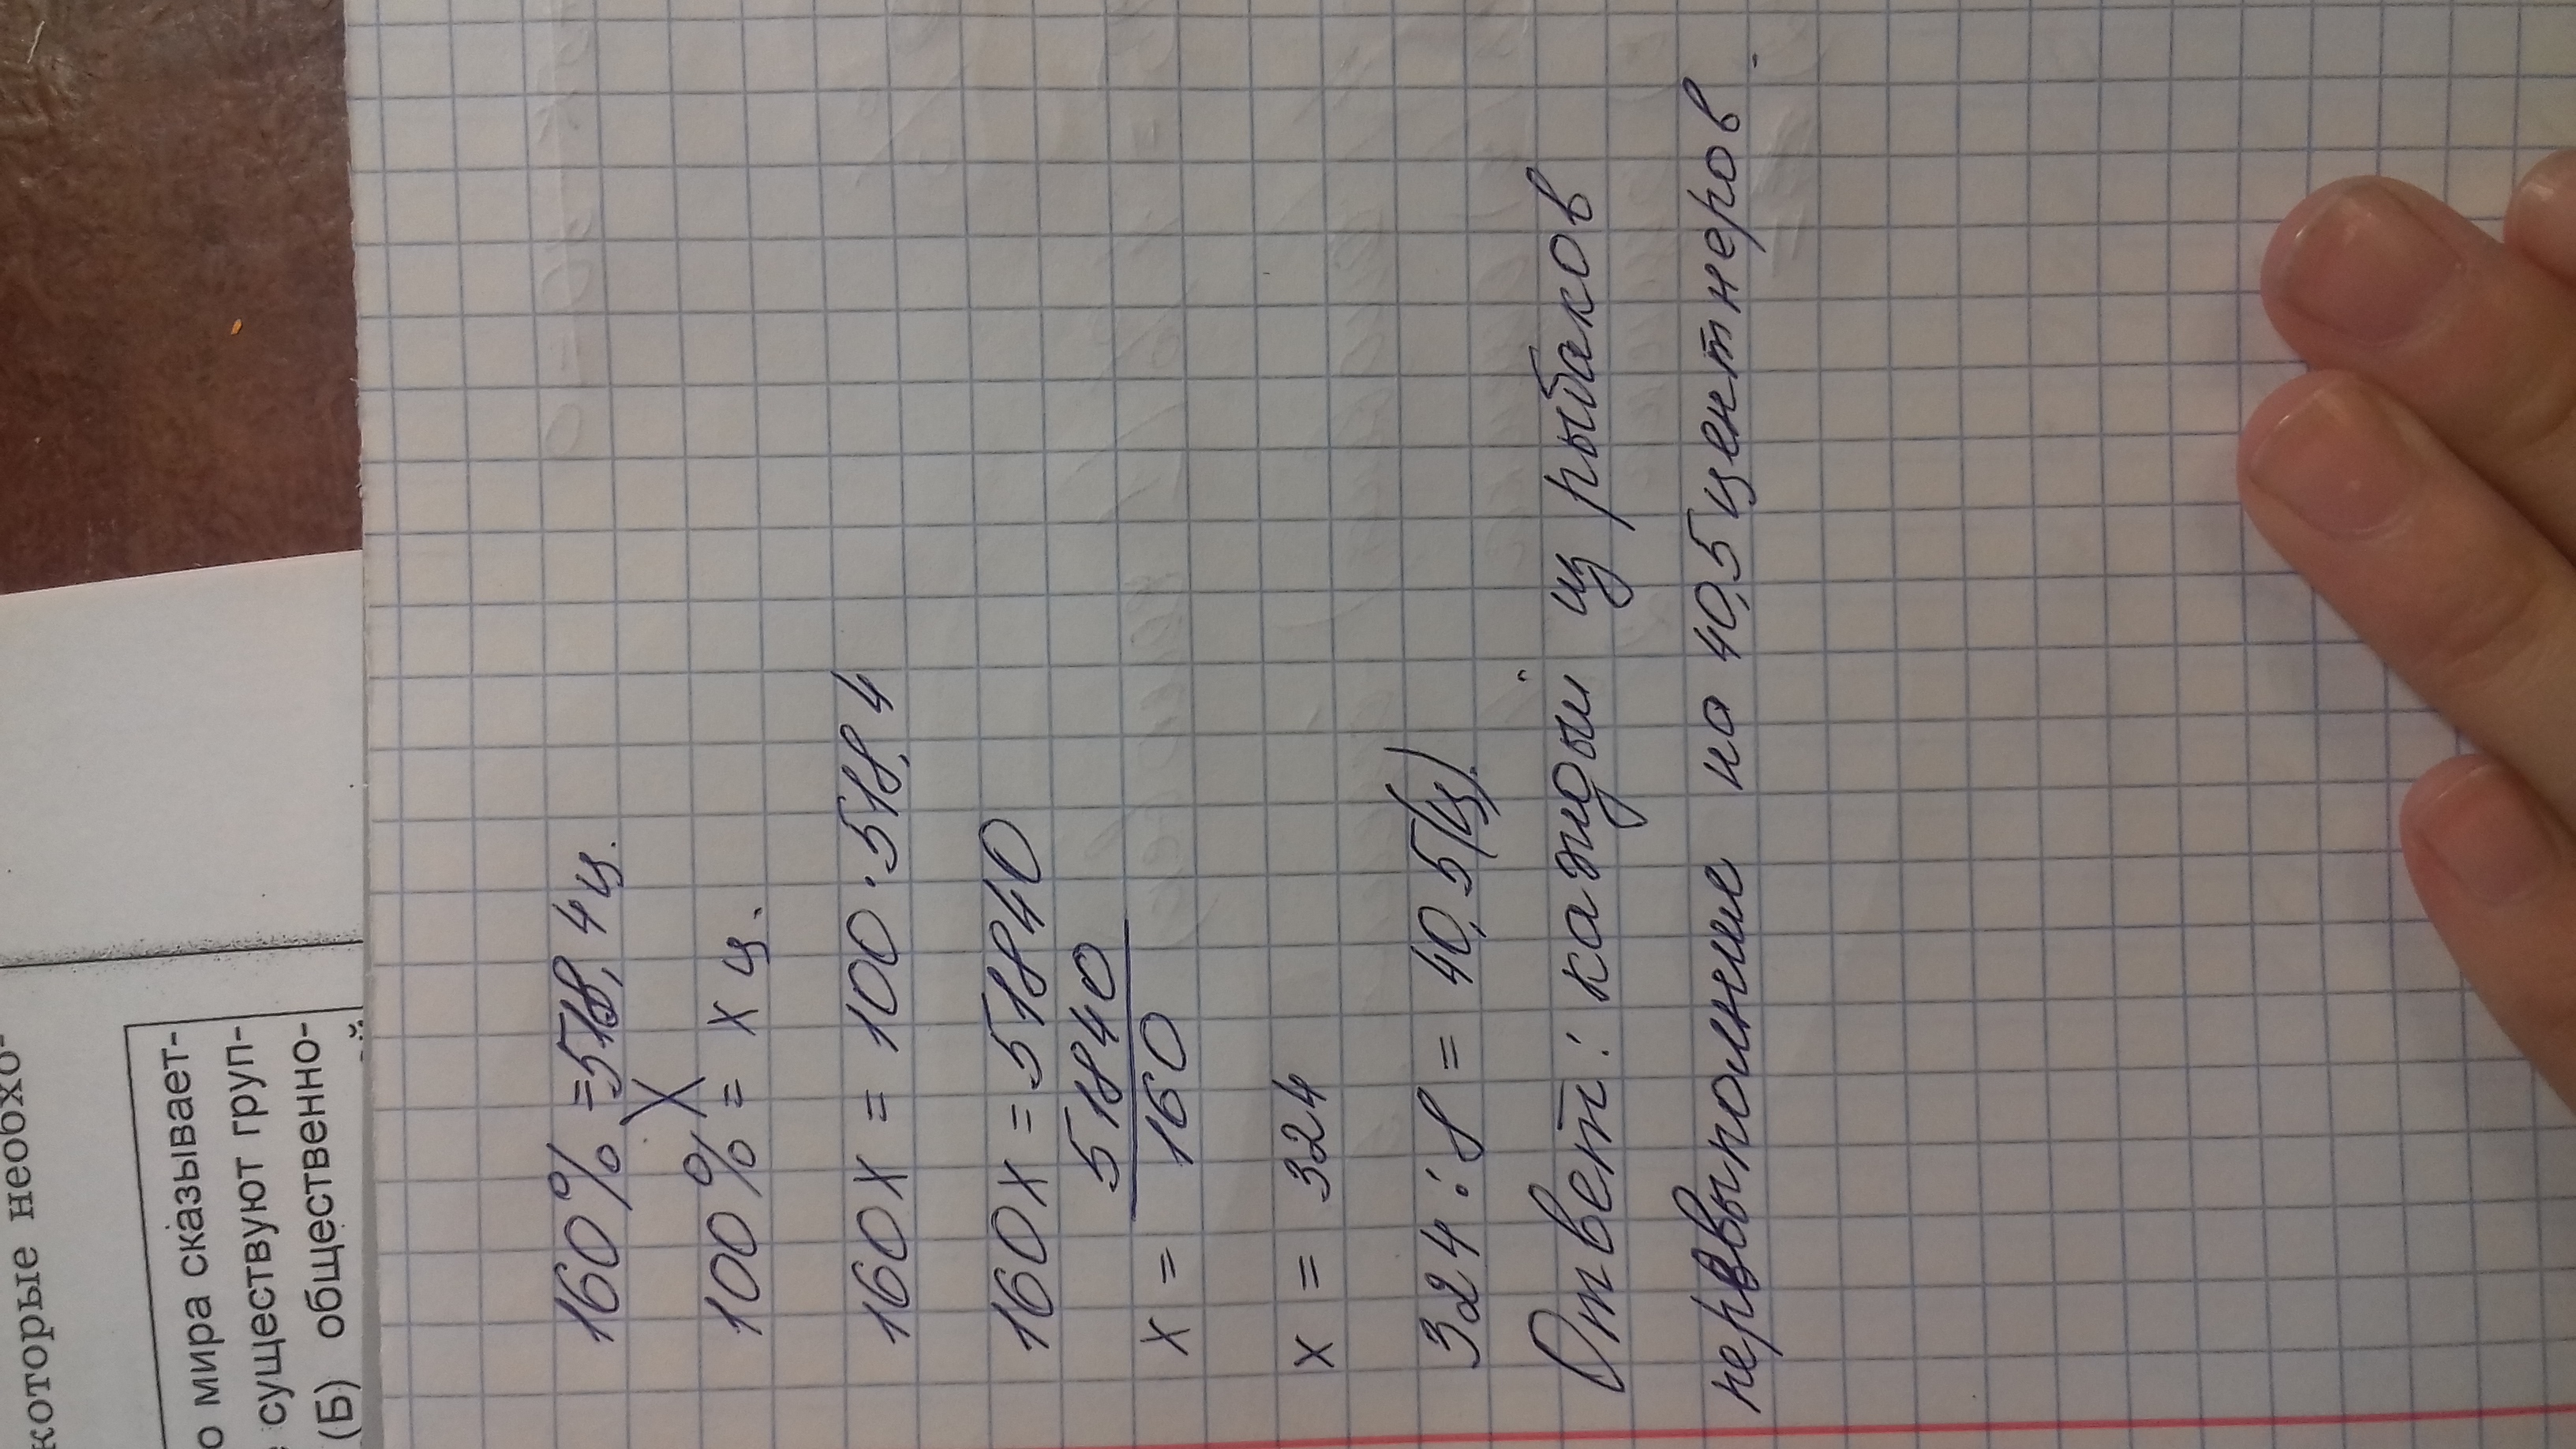 которые необхо-
о мира сказывает-
существуют груп-
(Б) общественно-
160% = 518,4 ц.
100% = х ц.
160х = 100 · 518,4
160х = 51840
х = 51840
160
х = 324
324 : 8 = 40,5(ц).
Ответ: каждый из рыбаков
первыполнил на 40,5 центнеров.